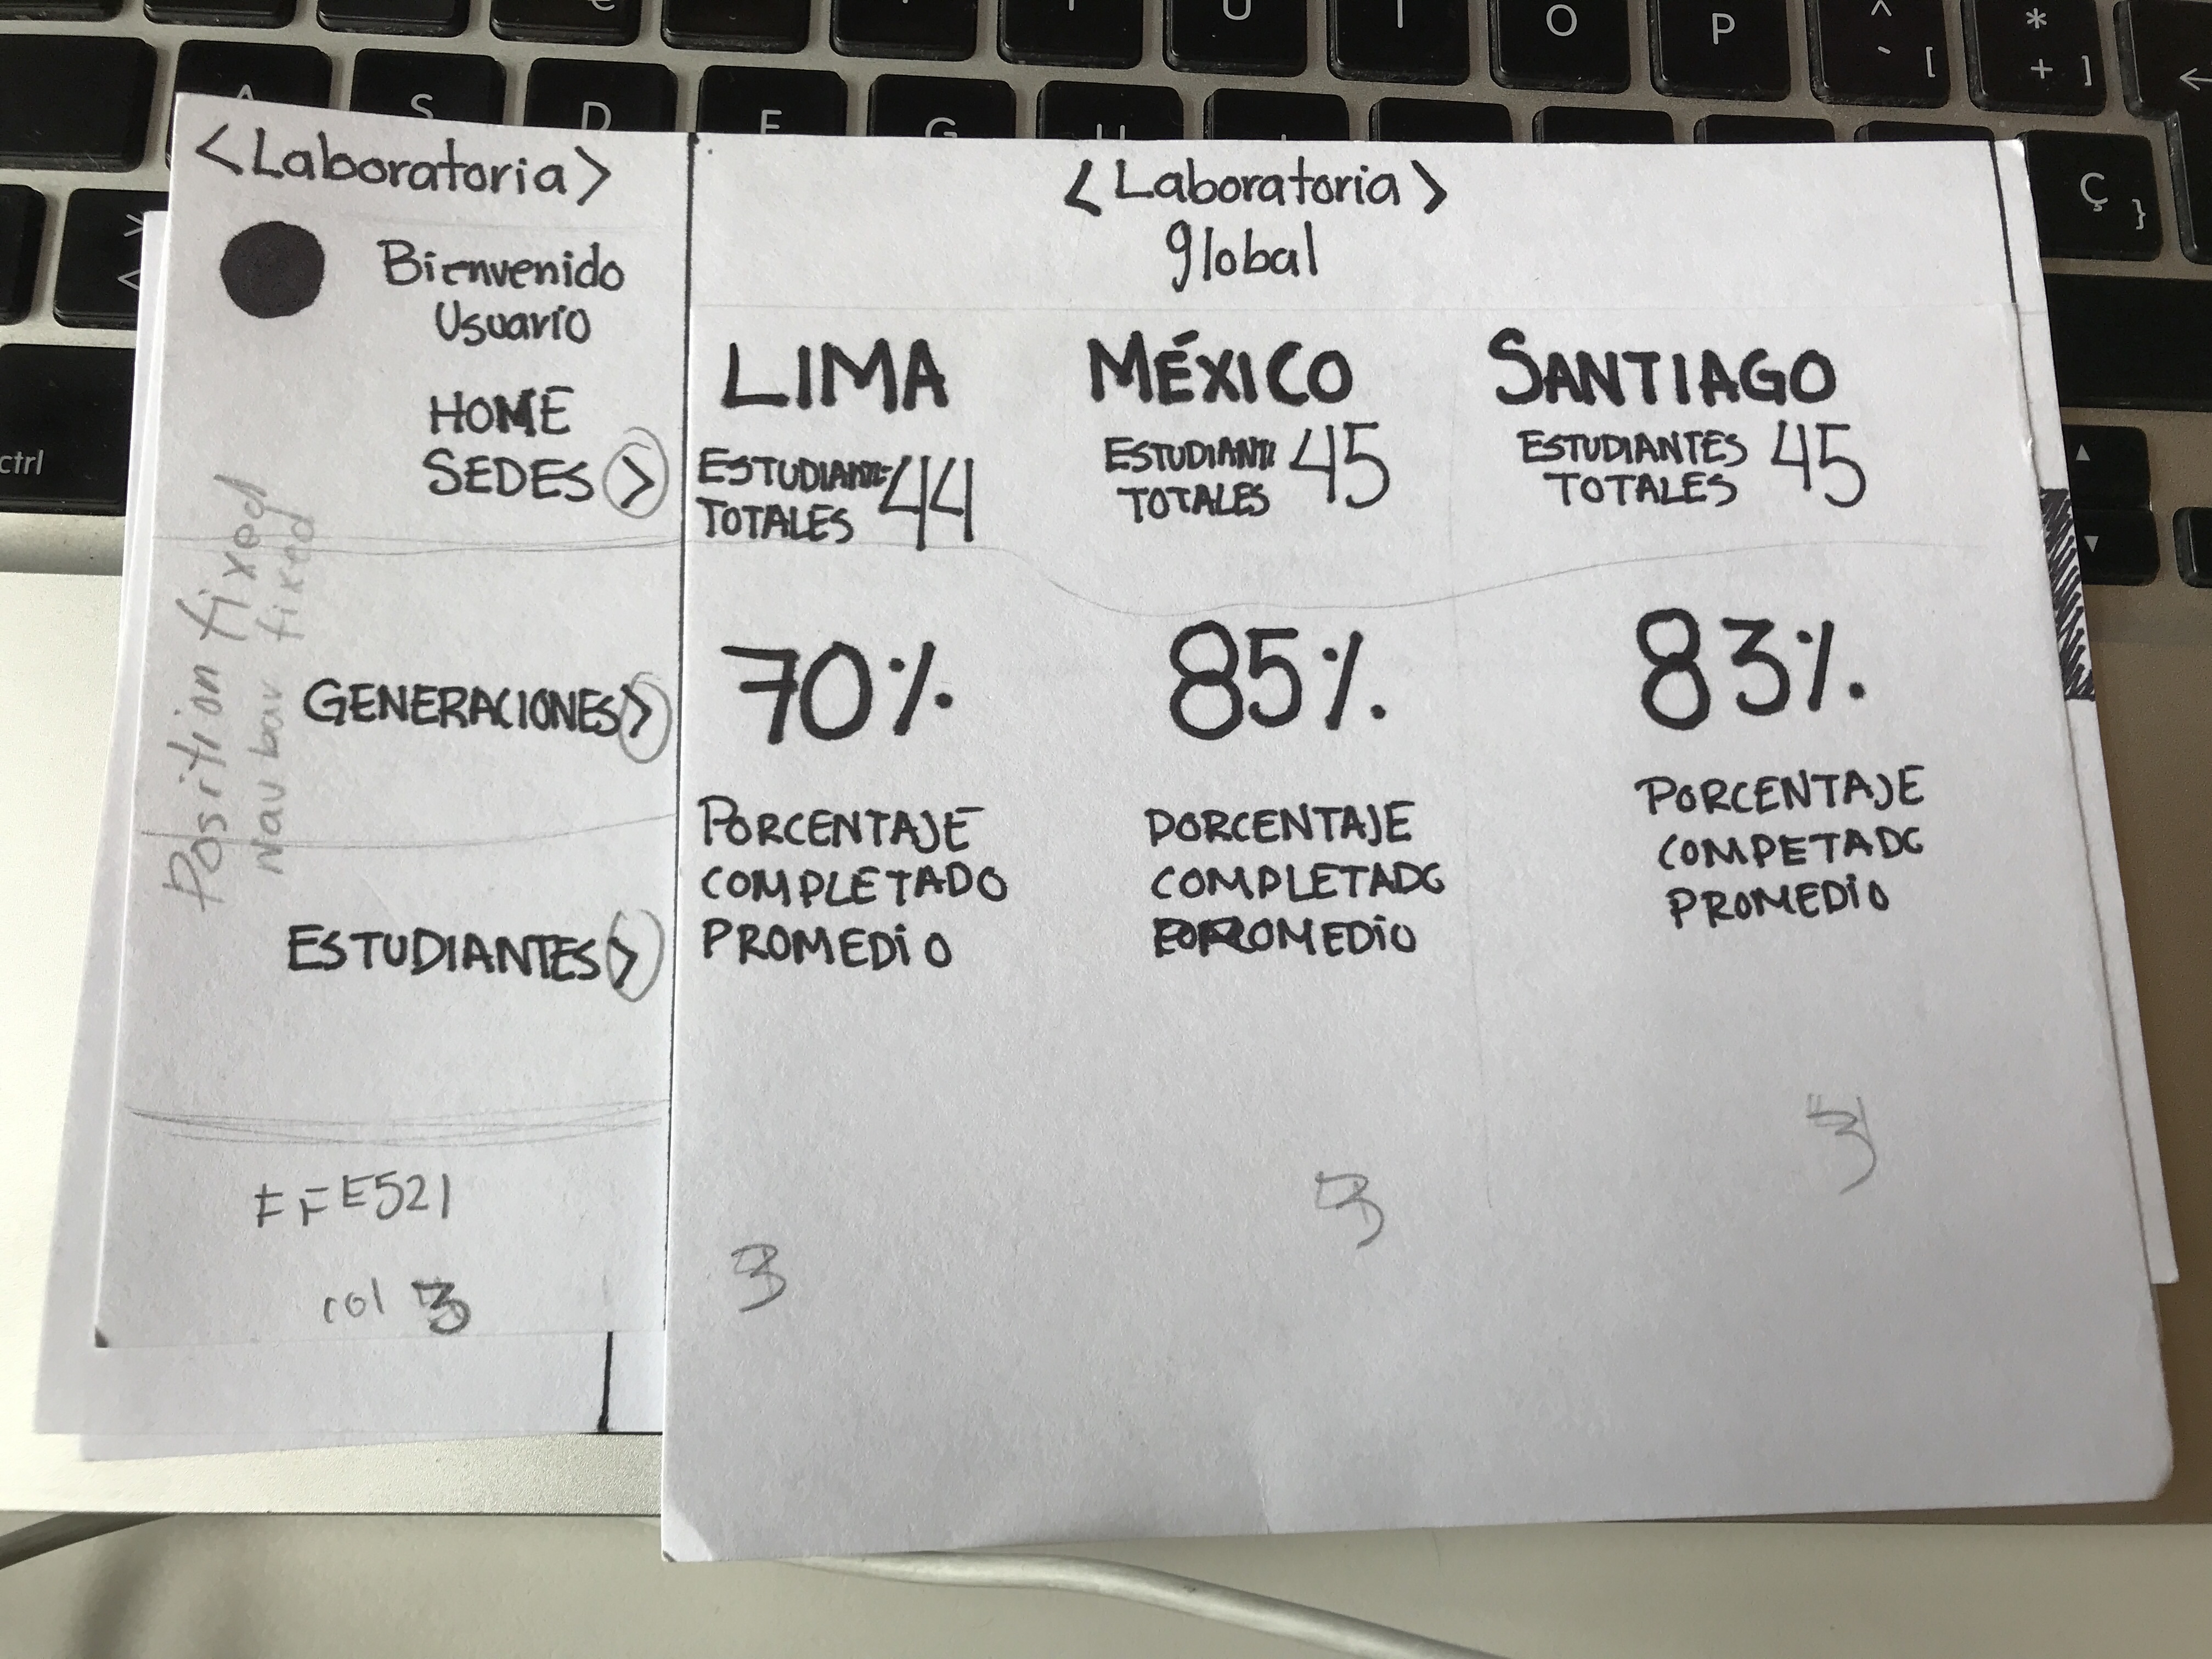 <Laboratoria>
Bienvenido
Usuario
HOME
SEDES >
GENERACIONES >
ESTUDIANTES >
Position fixed
Navbar fixed
FFE521
col 3
<Laboratoria>
global
LIMA
ESTUDIANTE 44
TOTALES
70%
PORCENTAJE
COMPLETADO
PROMEDIO
3
MÉXICO
ESTUDIANT 45
TOTALES
85%
PORCENTAJE
COMPLETADO
PROMEDIO
3
SANTIAGO
ESTUDIANTES 45
TOTALES
83%
PORCENTAJE
COMPETADO
PROMEDIO
3
A
S
D
F
G
U
I
O
P
^
` [
*
+ ]
Ç }
ctrl